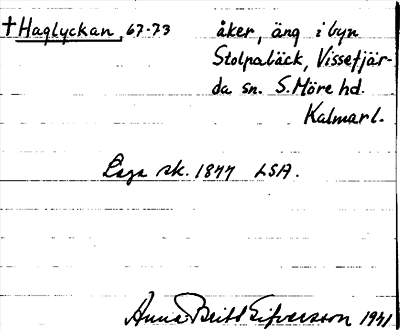 †Haglyckan, 67-73 åker, äng i byn
Stolpabäck, Vissefjär-
da sn. S. Möre hd.
Kalmar l.
Laga sk. 1877 LSA.
Anna Britt Eifversson 1941